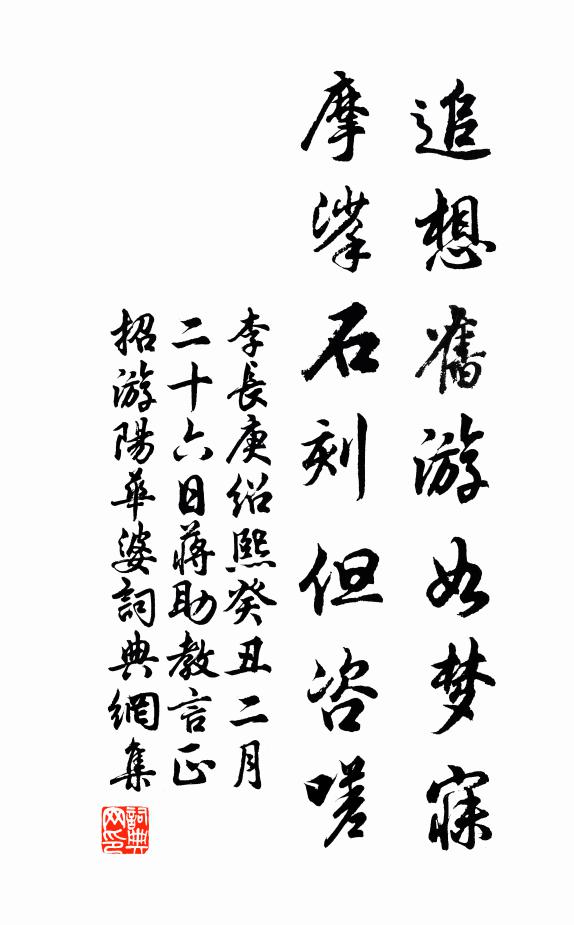 追想舊游如梦寐
摩挲石刻但咨嗟
李長庚紹熙癸丑二月
二十六日蒋助教言正
招游陽華婆詞典網集
詞典
网印